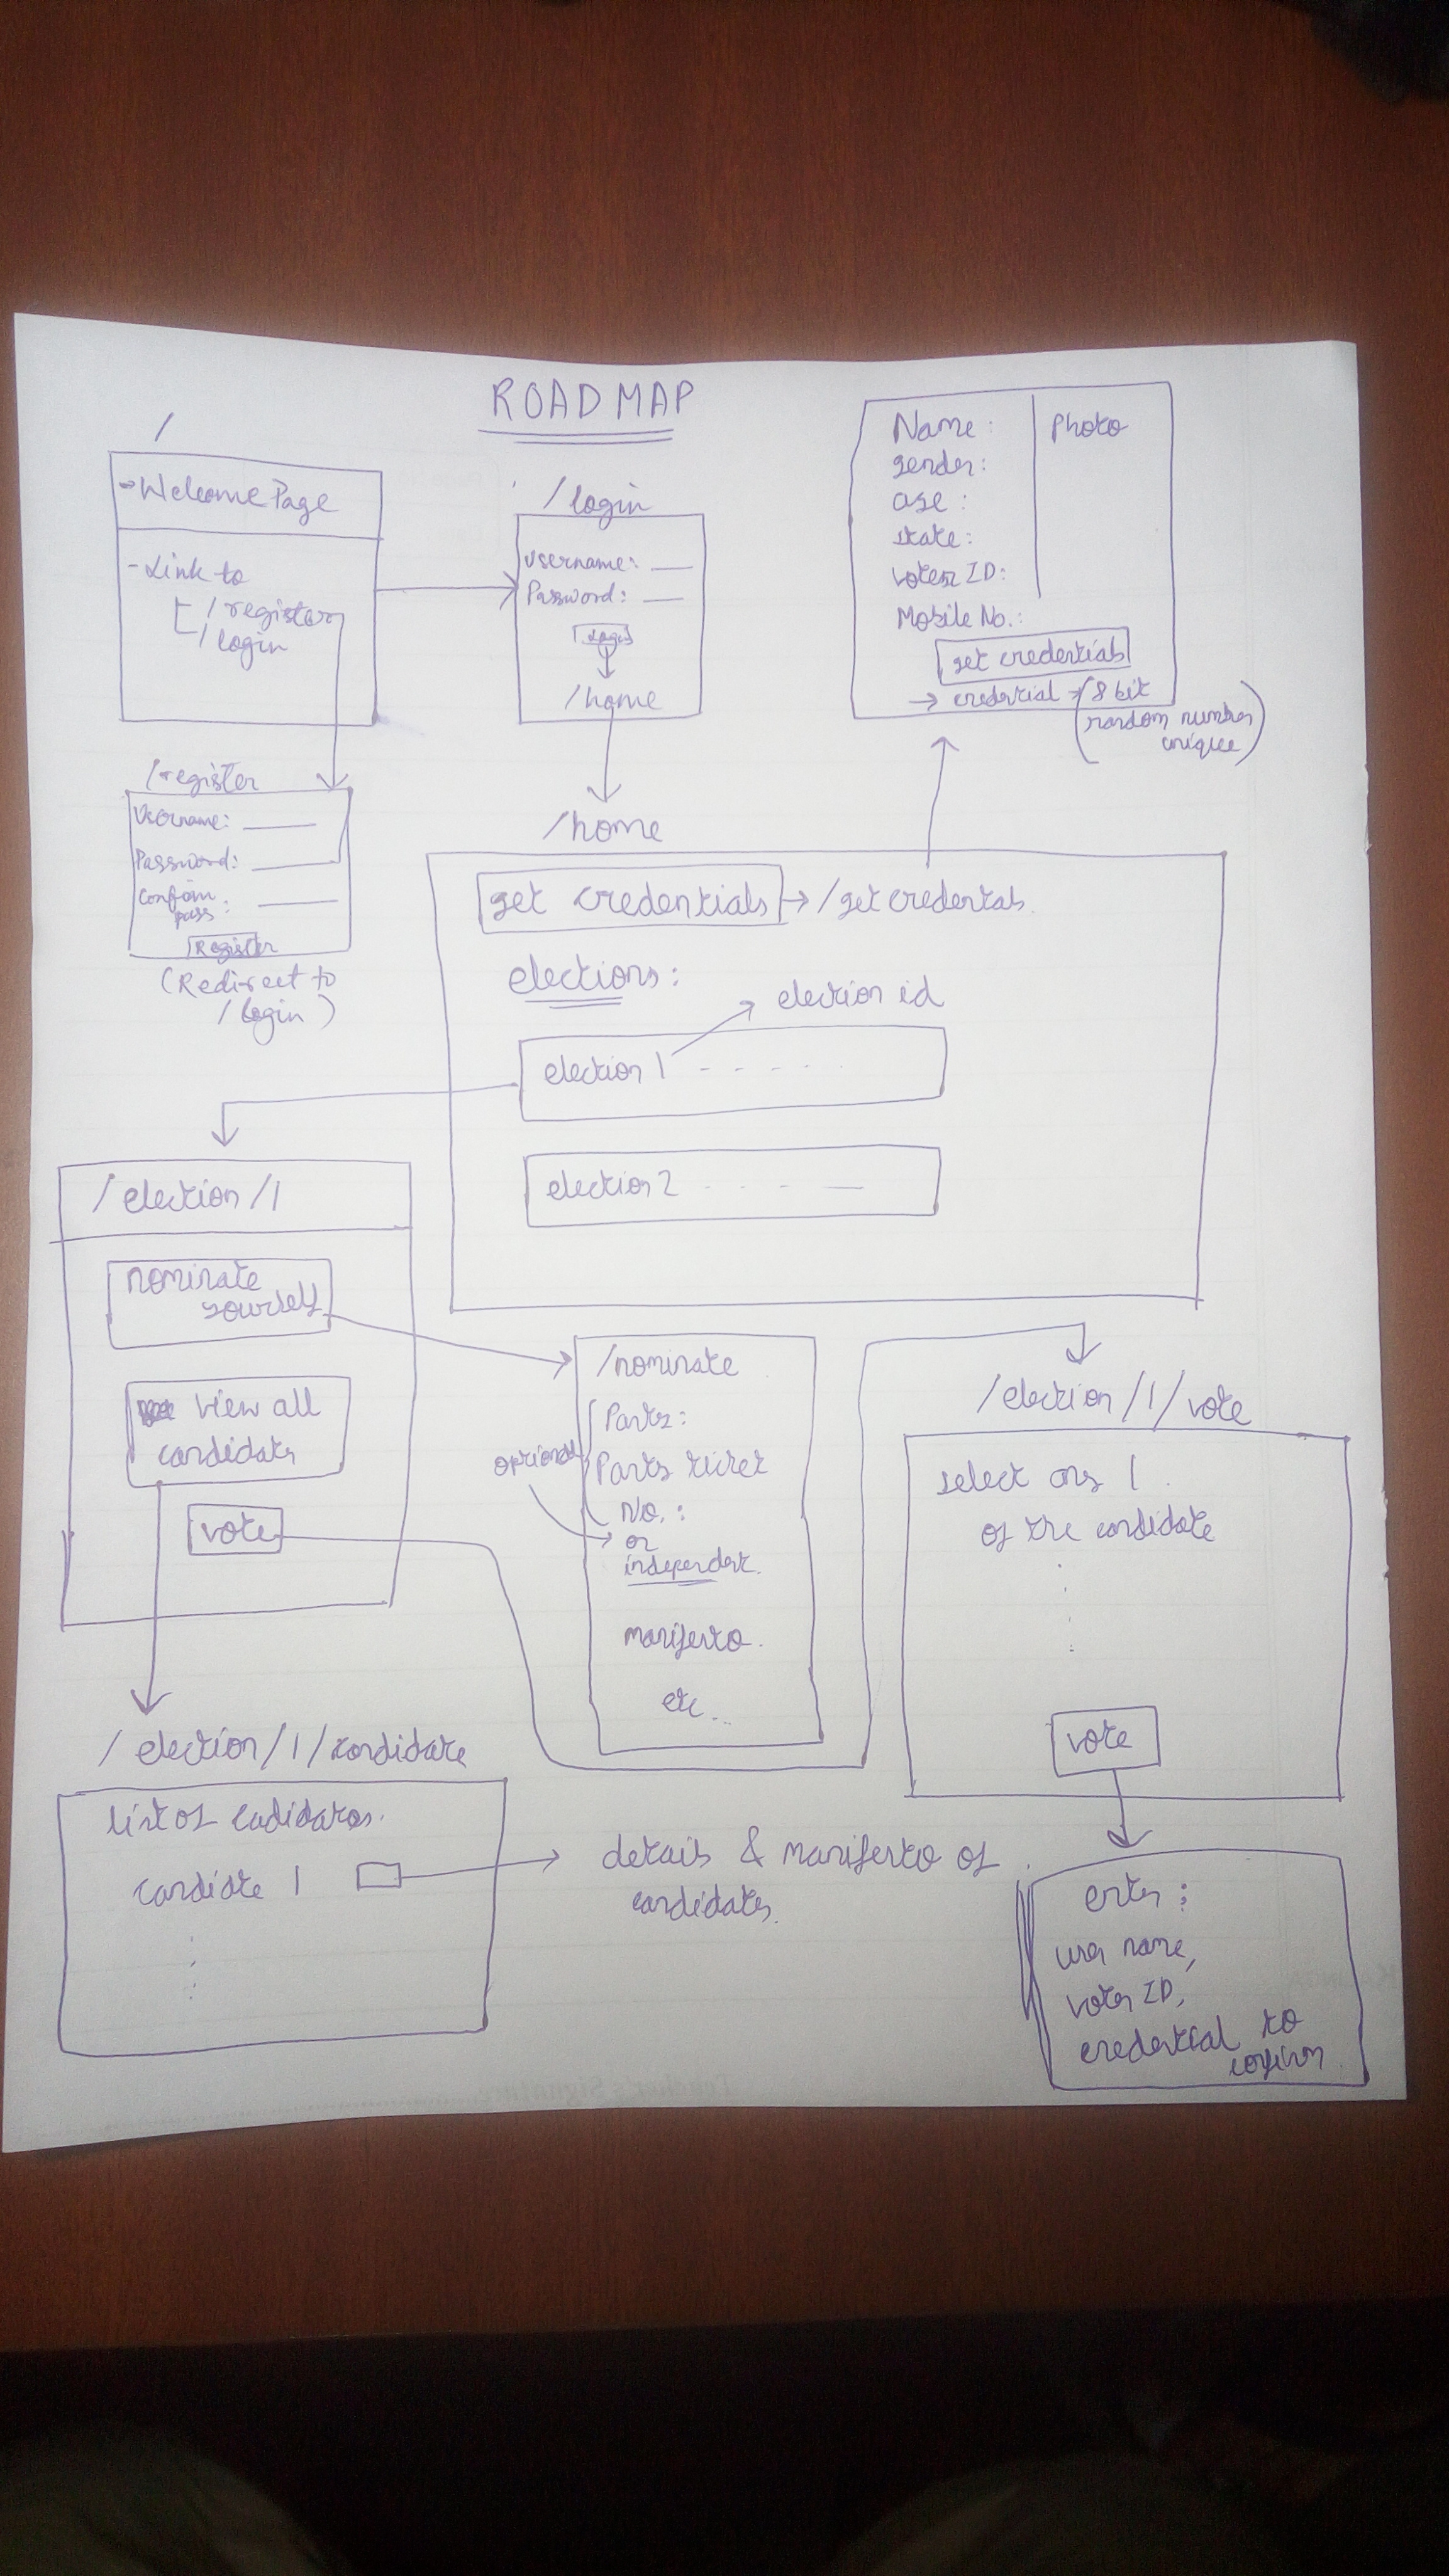 ROADMAP
/
→ Welcome Page
- Link to
/register
/login
/login
Username: __
Password: __
Login
/home
Name:
gender:
age:
state:
Voter ID:
Mobile No.:
Photo
get credentials
→ credential → (8 bit
random number
unique)
/register
Username: ____
Password: ____
Confirm
pass: ____
Register
(Redirect to
/login)
/home
get credentials → /getcredentials
elections:
election id
election 1 - - - - -
election 2 - - - —
/election/1
nominate
yourself
view all
candidates
vote
/nominate
Party:
Party ticket
No. :
optional
or
independent.
manifesto.
etc...
/election/1/vote
select any 1
of the candidate
vote
enter:
user name,
voter ID,
credential to
confirm.
/election/1/candidate
list of cadidates.
candidate 1
details & manifesto of
candidates.